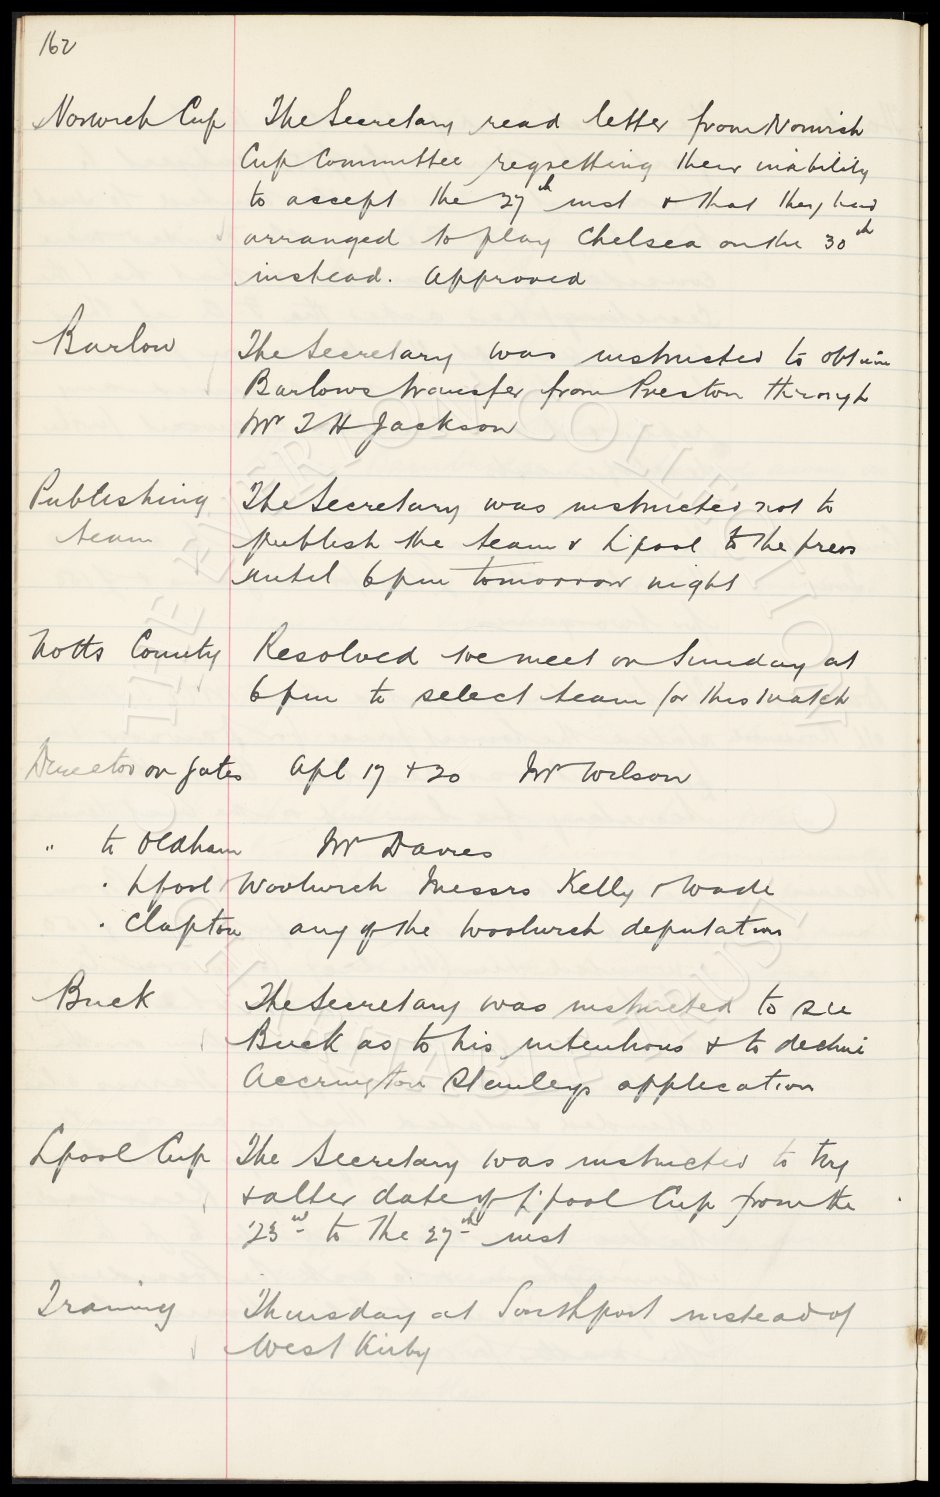 162
Norwich Cup The Secretary read letter from Norwich
Cup Committee regretting their inability
to accept the 27th inst & that they had
arranged to play Chelsea on the 30th
instead. Approved
Barlow The Secretary was instructed to obtain
Barlows transfer from Preston through
Mr T H Jackson
Publishing The Secretary was instructed not to
team publish the team v L'pool to the press
until 6pm tomorrow night
Notts County Resolved we meet on Sunday at
6pm to select team for this match
Director on gates Apl 17 + 20 Mr Wilson
" to Oldham Mr Davies
" Lpool v Woolwich Messrs Kelly & Wade
" Clapton any of the Woolwich deputation
Buck The Secretary was instructed to see
Buck as to his intentions & to decline
Accrington Stanleys application
Lpool Cup The Secretary was instructed to try
& alter date of L'pool Cup from the
23rd to the 27th inst
Training Thursday at Southport instead of
West Kirby
THE EVERTON COLLECTION
CHARITABLE TRUST